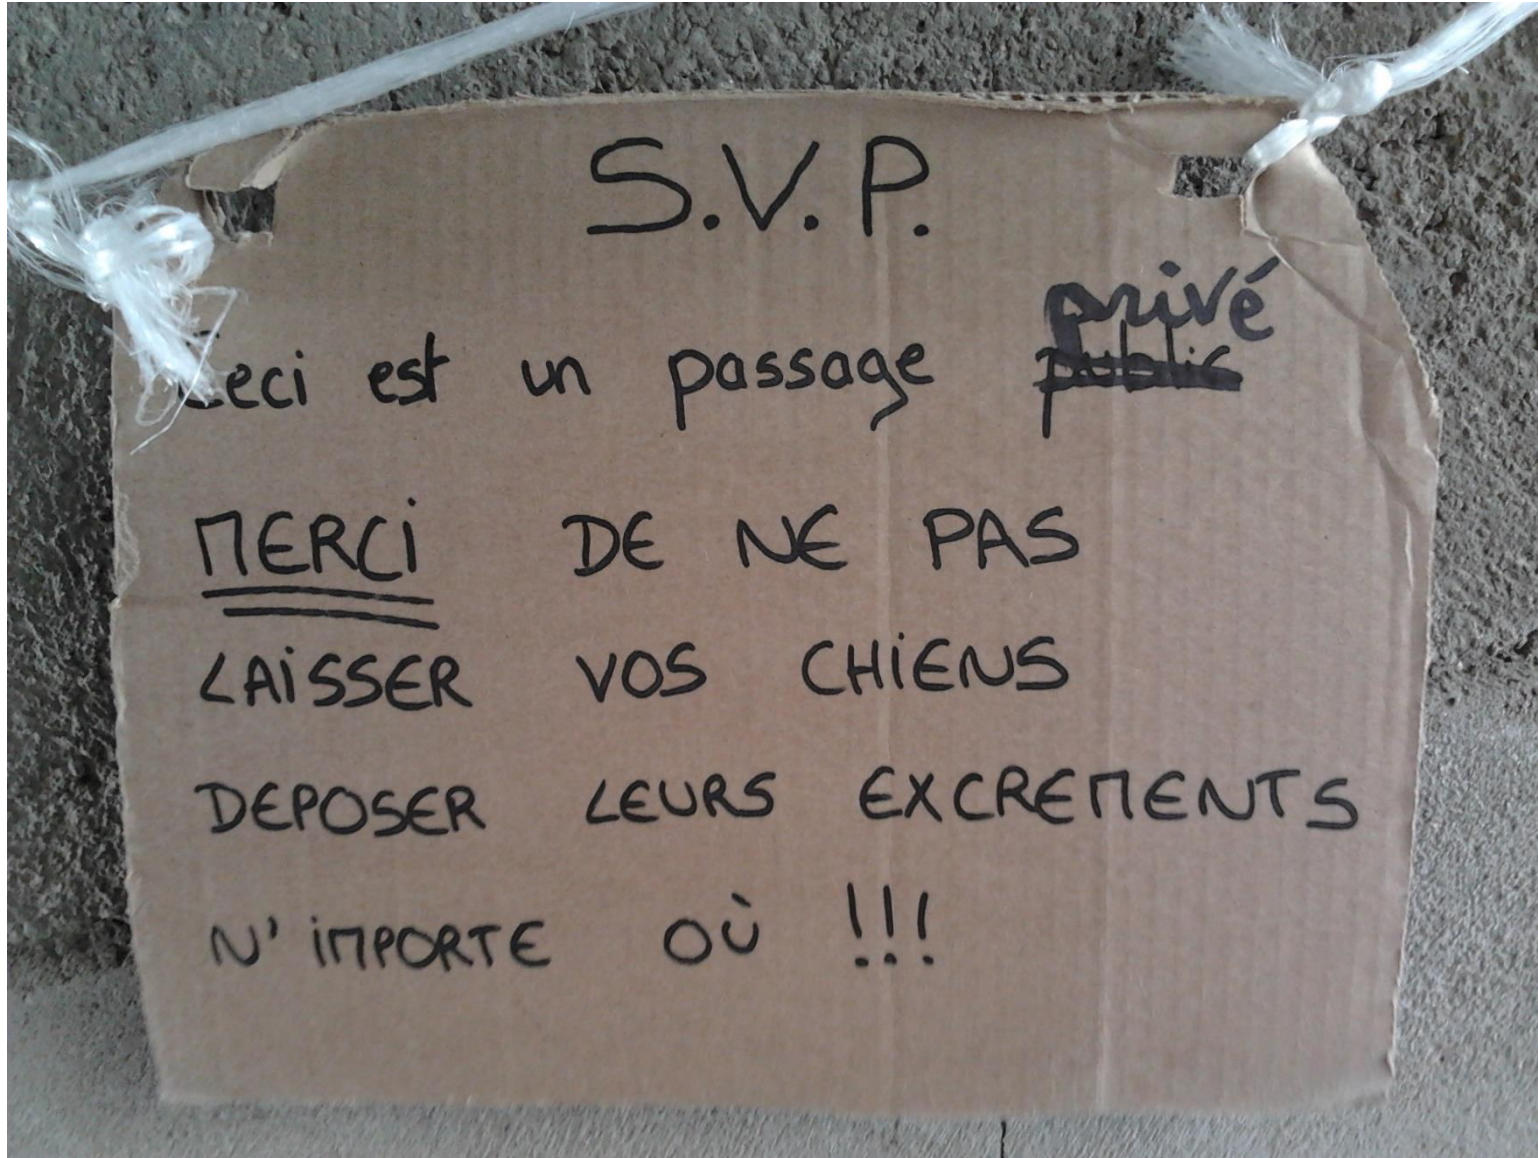 S.V.P.
Ceci est un passage public privé
MERCi DE NE PAS
LAiSSER VOS CHiENS
DEPOSER LEURS EXCREMENTS
N'iMPORTE OÙ !!!